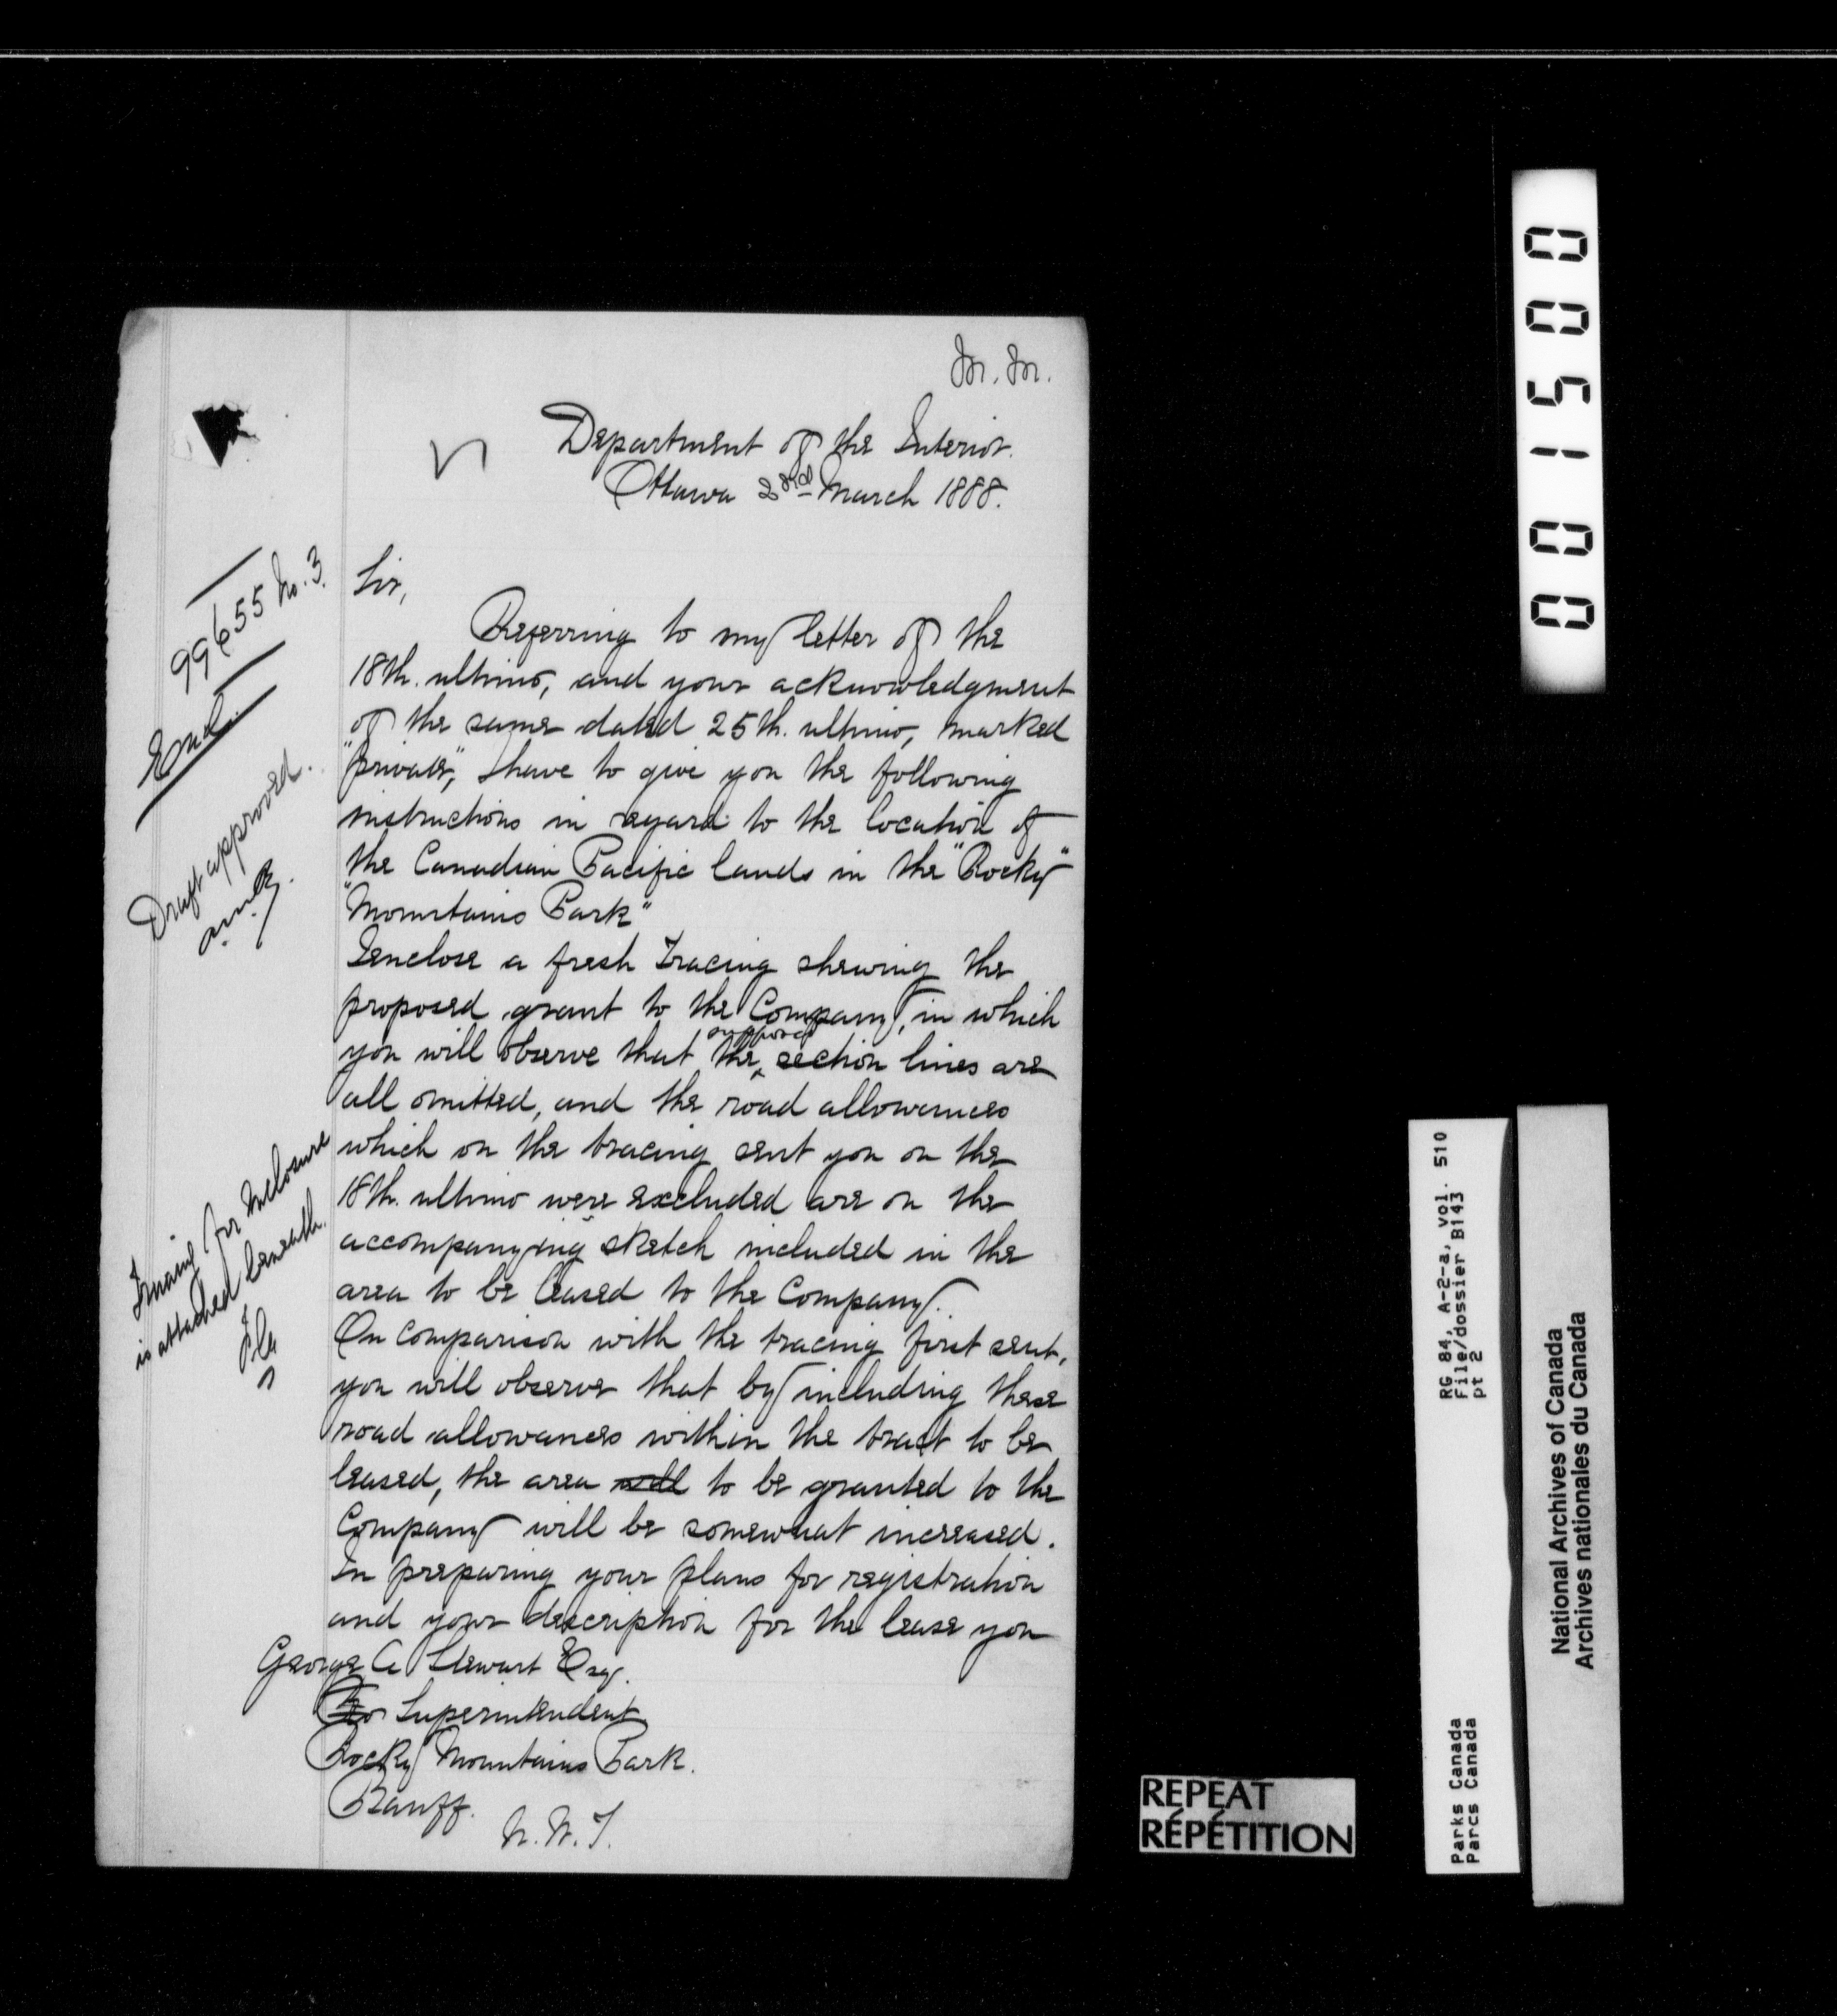 M. M.
Department of the Interior.
Ottawa 2nd March 1888.
99655 No. 3.
Encl.
Draft approved.
Sir,
Referring to my letter of the
18th. ultimo, and your acknowledgment
of the same dated 25th. ultimo, marked
"private", I have to give you the following
instructions in regard to the location of
the Canadian Pacific lands in the "Rocky"
"Mountains Park"
I enclose a fresh tracing shewing the
proposed grant to the Company, in which
you will observe that the supposed section lines are
all omitted, and the road allowances
which on the tracing sent you on the
18th. ultimo were excluded are on the
accompanying sketch included in the
area to be leased to the Company.
Tracing for Inclosure
is attached beneath.
On comparison with the tracing first sent,
you will observe that by including these
road allowances within the tract to be
leased, the area will to be granted to the
Company will be somewhat increased.
In preparing your plans for registration
and your description for the lease you
George A Stewart Esq.
Superintendent
Rocky Mountains Park.
Banff.
N. W. T.
001500
RG 84, A-2-a, vol. 510
File/dossier B143
pt 2
Parks Canada
Parcs Canada
National Archives of Canada
Archives nationales du Canada
REPEAT
RÉPÉTITION